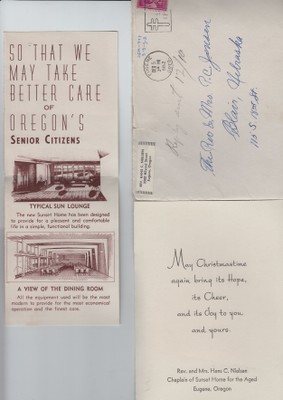 SO THAT WE
MAY TAKE
BETTER CARE
OF
OREGON'S
SENIOR CITIZENS
TYPICAL SUN LOUNGE
The new Sunset Home has been designed
to provide for a pleasant and comfortable
life in a simple, functional building.
A VIEW OF THE DINING ROOM
All the equipment used will be the most
modern to provide for the most economical
operation and the finest care.
The Rev & Mrs. P.C. Jensen
Blair, Nebraska
Eugene, Oregon
May Christmastime
again bring its Hope,
its Cheer,
and its Joy to you
and yours.
Rev. and Mrs. Hans C. Nielsen
Chaplain of Sunset Home for the Aged
Eugene, Oregon